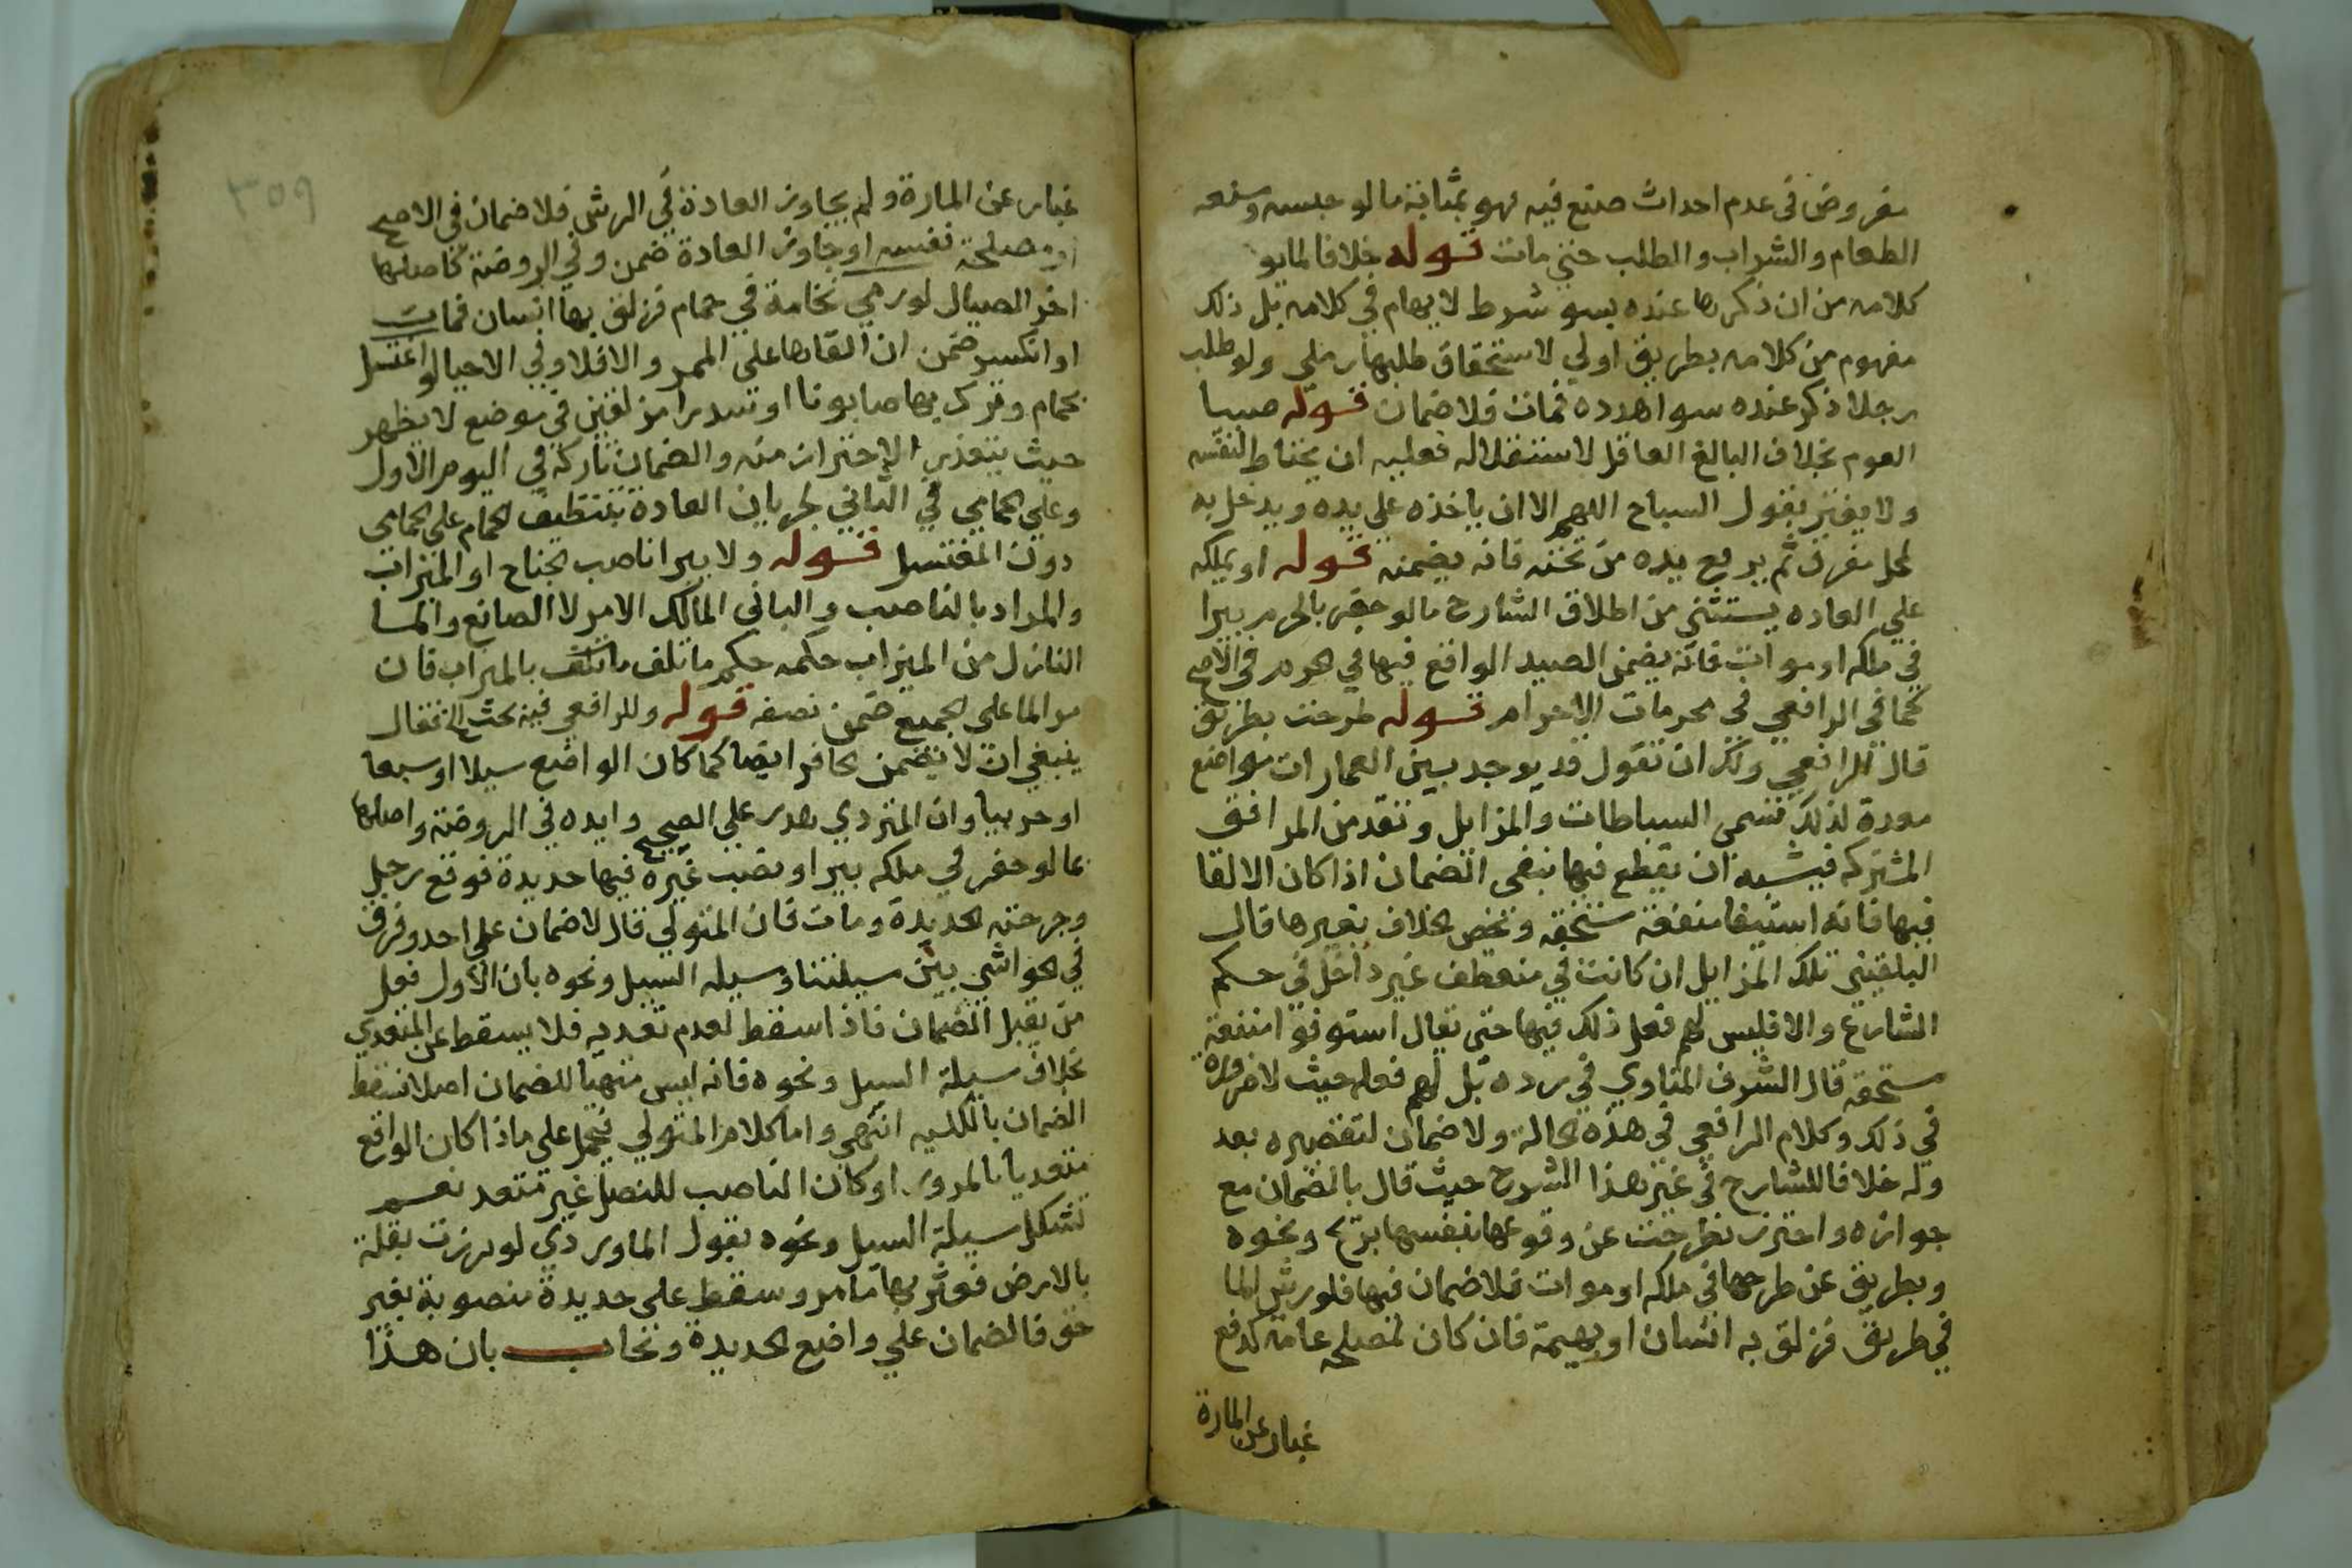 مفروض في عدم احداث صنع فيه فهو بمثابة ما لو حبسه ومنعه
الطعام والشراب والطلب حتى مات قوله خلافا لما يو
كلامه من ان ذكرها عنده بسو شرط لا يهام في كلامه بل ذلك
مفهوم من كلامه بطريق اولي لاستحقاق طلبها ولو طلب
رجلا ذكر عنده سوا هدده فمات فلا ضمان قوله صبيا
العوم بخلاف البالغ العاقل لاستقلاله فعليه ان يحتاط لنفسه
ولا يغتر بقول السباح اللهم الا ان ياخذه علي يده ويدخل به
لمحل مغرق ثم يرفع يده من تحته فانه يضمنه قوله او بملكه
علي العاده يستثني من اطلاق الشارح ما لو حفر بالحرم بيرا
في ملكه او موات فانه يضمن الصيد الواقع فيها في الحرم في الاصح
كما في الرافعي في محرمات الاحرام قوله طرحت بطريق
قال الرافعي ولك ان تقول قد يوجد بين العمارات مواضع
معدة لذلك تسمى السباطات والمزابل وتعد من المرافق
المشتركه فيشبه ان يقطع فيها بنفي الضمان اذا كان الالقا
فيها فانه استيفا منفعة مستحقه وتخص الخلاف بغيرها قال
البلقيني تلك المزابل ان كانت في منعطف غير داخل في حكم
الشارع والا فليس لهم فعل ذلك فيها حتى يقال استوفوا منفعة
مستحقه قال الشرف المناوي في رده بل لهم فعله حيث لا ضرورة
في ذلك وكلام الرافعي في هذه الحالة ولا ضمان لتقصيره بعد
وله خلافا للشارح في غير هذا الشرح حيث قال بالضمان مع
جوازه واحترز بطرحت عن وقوعها بنفسها بريح ونحوه
وبطريق عن طرحها في ملكه او موات فلا ضمان فيها فلو رش الما
في طريق فزلق به انسان او بهيمة فان كان لمصلحة عامة كدفع
غبار عن المارة
٣٥٩
غبار عن المارة ولم يجاوز العادة في الرش فلا ضمان في الاصح
او مصلحة نفسه او جاوز العادة ضمن وفي الروضة كاصلها
اخر الصيال لو رمي نخامة في حمام فزلق بها انسان فمات
او انكسر ضمن ان القاها على الممر والا فلا وفي الاحيا لو اغتسل
بحمام وترك بها صابونا او سدرا مزلقين في موضع لا يظهر
حيث يتعذر الاحتراز منه والضمان تاركة في اليوم الاول
وعلي الحمامي في الثاني لجريان العادة بتنظيف الحمام علي الحمامي
دون المغتسل قوله ولا يبرا ناصب الجناح او الميزاب
والمراد بالناصب والباني المالك الامر لا الصانع والما
النازل من الميزاب حكمه حكم ما تلف بالميزاب فان
مر الما على الجميع ضمن نصفه قوله وللرافعي فيه بحث الخ فقال
ينبغي ان لا يضمن الحافر ايضا كما كان الواضع سيلا او سبعا
او حربيا وان المتردي هدر على الصحيح وايده في الروضة واصلها
بما لو حفر في ملكه بيرا ونصب غيره فيها حديدة فوقع رجل
وجرحته الحديدة ومات فان المتولي قال لا ضمان علي احد وفرق
في الحواشي بين مسيلتنا ومسيله السيل ونحوه بان الاول فعل
من يقبل الضمان فاذا سقط لعدم تعديه فلا يسقط عن المتعدي
بخلاف مسيلة السيل ونحوه فانه ليس متهيا للضمان اصلا فسقط
الضمان بالكليه انتهي واما كلام المتولي فيحمل على ما اذا كان الواقع
متعديا بالمرور او كان الناصب للنصل غير متعد نعم
تشكل مسيلة السيل ونحوه بقول الماوردي لو برزت بقلة
بالارض فعثر بها مار وسقط على حديدة منصوبة بغير
حق فالضمان علي واضع الحديدة ويجاب بان هذا